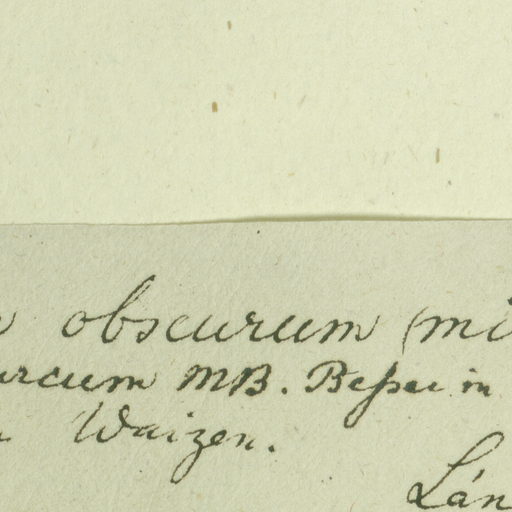 obscurum (mi
urcum MB. Besser in
Waizen.
Lán